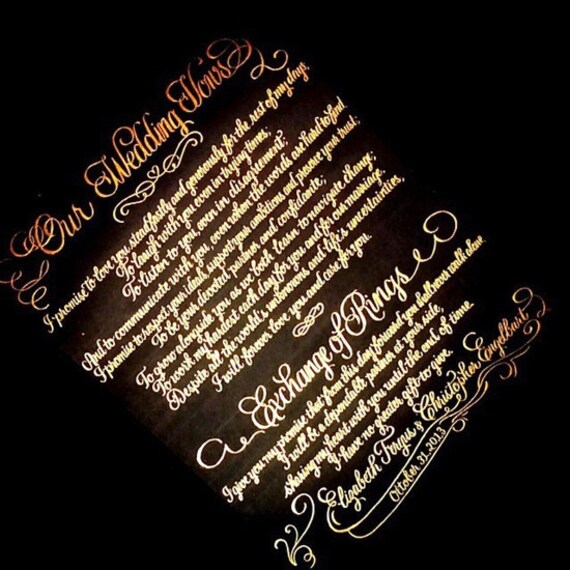 Our Wedding Vows
I promise to love you, steadfastly and generously, for the rest of my days,
To laugh with you even in trying times,
To listen to you even in disagreement;
And to communicate with you, even when the words are hard to find
I promise to respect your ideals, support your ambitions and preserve your trust;
To be your devoted partner and confidante;
To grow alongside you as we both learn to navigate change;
To work my hardest each day for you and for our marriage.
Despite all the world's imitations and life's uncertainties,
I will forever love you and care for you.
Exchange of Rings
I give you my promise that from this day forward you shall never walk alone
I will be a dependable partner at your side,
sharing my heart with you until the end of time.
I have no greater gift to give.
Elizabeth Fergis & Christopher Engelbart
October 31, 2013